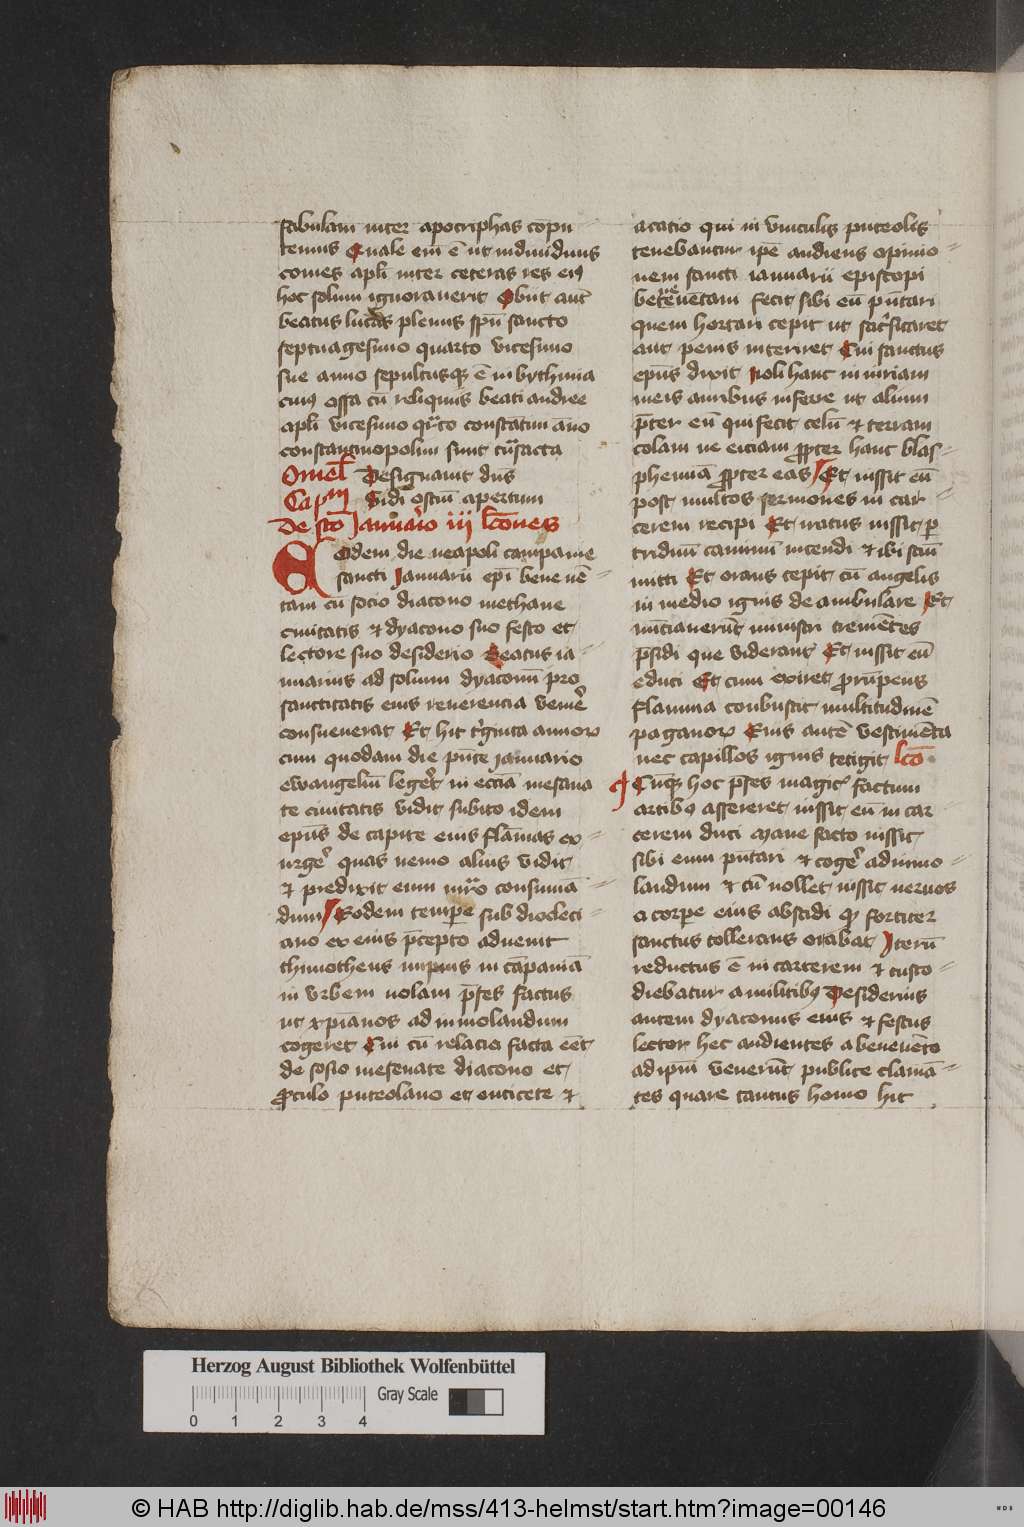 fabulam inter apocriphas conpu
temus Quale em̄ ē ut indiuiduus
comes apl̄i inter ceteras res eiꝰ
hoc solum ignorauerit Obiit aut̄
beatus lucas plenus sp̄u sancto
septuagesimo quarto vicesimo
sue anno sepultusqꝫ ē in bythinia
cuiꝰ ossa cū reliquiis beati andree
apl̄i vicesimo qͣrto constātini āno
constantinopolim sunt
Omel̄ Designauit dn̄s
Capᵐ Vidi ostiū apertum
De sc̄o Januario iii lc̄ones
Eodem die neapoli campanie
sancti Januarii ep̄i beneuē
tam cū socio diacono
ciuitatis et dyacono suo festo et
lectore suo desiderio Beatus ia
nuarius ad solum dyaconū pro
sanctitatis eius reuerencia venire
consueuerat Et hic tͥginta annorꝝ
cum quodam die pn̄te januario
ewangeliū legeret in ecc̄ia mesana
te ciuitatis vidit subito idem
ep̄us de capite eius flāmas ex
urgere quas nemo alius vidit
et predixit eum consumā
dum Eodem tempe sub diocleci
ano ex eius p̄cepto aduenit
thimotheus impius in cāpaniā
in vrbem nolam p̄ses factus
ut xp̄ianos ad immolandum
cogeret Cui cū relacio facta eēt
de sosio mesenate diacono et
proculo puteolano et euticete et
acacio qui in vinculis puteolis
tenebantur ip̄e audiens opinio
nem sancti ianuarii episcopi
beneuentam fecit sibi eū pn̄tari
quem hortari cepit ut sacͥficaret
aut penis interiret Cui sanctus
ep̄us dixit Noli hanc iniuriam
meis auribus inferre ut alium
p̄ter eū qui fecit celū et terram
colam ne eiciam propter hanc blas
phemiā propter eas Et iussit eū
post multos sermones in car
cerem recipi Et iratus iussit per
triduū caminū incendi et ibi sc̄m
mitti Et orans cepit cū angelis
in medio ignis deambulare Et
nūciauerūt ministri tremētes
p̄sidi que viderant Et iussit eū
educi Et cum exiret prorūpens
flamma conbussit multitudinē
paganorꝝ Eius autē vestimēta
nec capillos ignis tetigit lc̄o
Cūqꝫ hoc p̄ses magicͥ factum
artibꝰ assereret iussit eū in car
cerem duci Mane facto iussit
sibi eum pn̄tari et cogere ad immo
landum et cū nollet iussit neruos
a corpe eius abscidi qͦ fortiter
sanctus tollerans orabat Iterū
reductus ē in carcerem et custo
diebatur a militibꝰ Desiderius
autem dyaconus eius et festus
lector hec audientes a beneuēto
ad ip̄m venerūt publice clamā
tes quare tantus homo hic
Herzog August Bibliothek Wolfenbüttel
Gray Scale
0 1 2 3 4
© HAB http://diglib.hab.de/mss/413-helmst/start.htm?image=00146